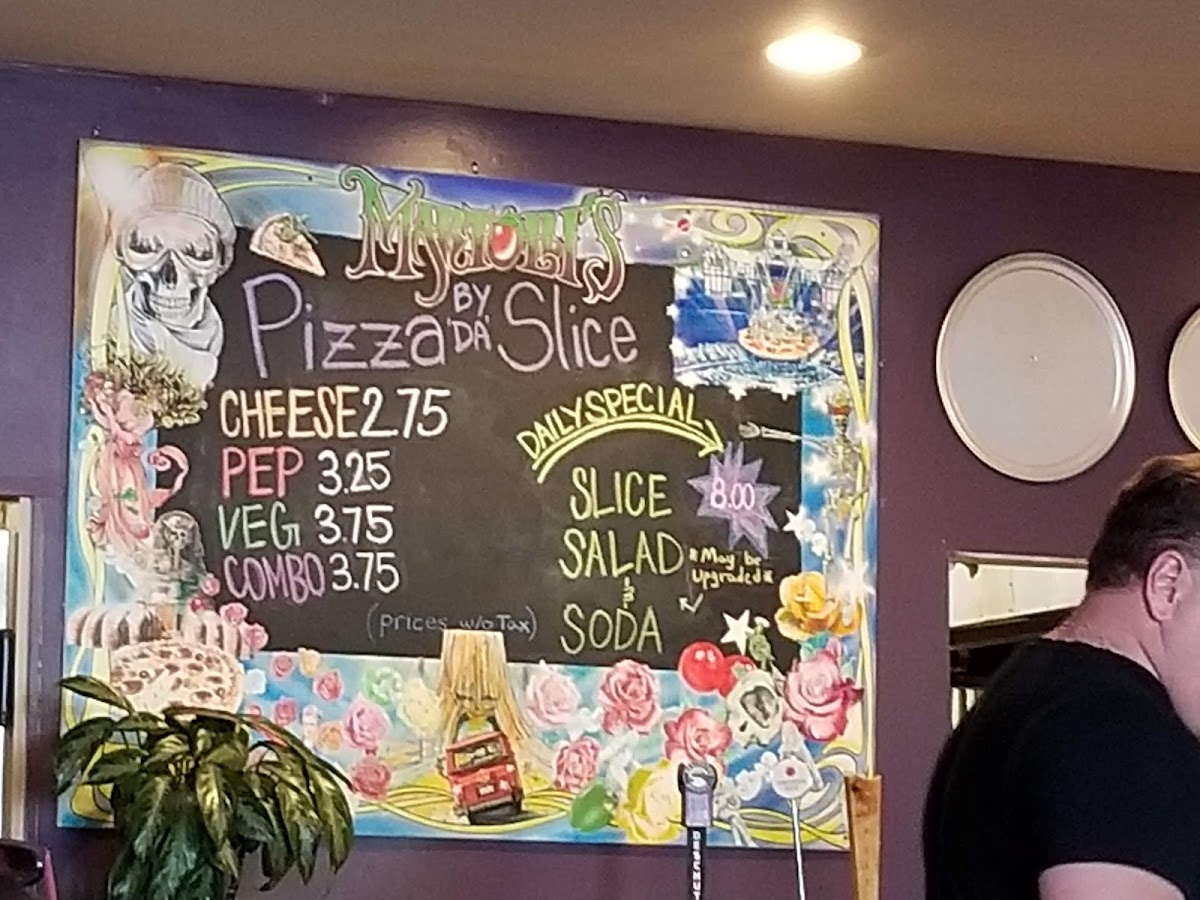 MARTOLLI'S
Pizza BY 'DA' Slice
CHEESE 2.75
PEP 3.25
VEG 3.75
COMBO 3.75
(prices w/o Tax)
DAILY SPECIAL
SLICE
8.00
SALAD
*May be
Upgraded*
&
SODA
DESCHUT